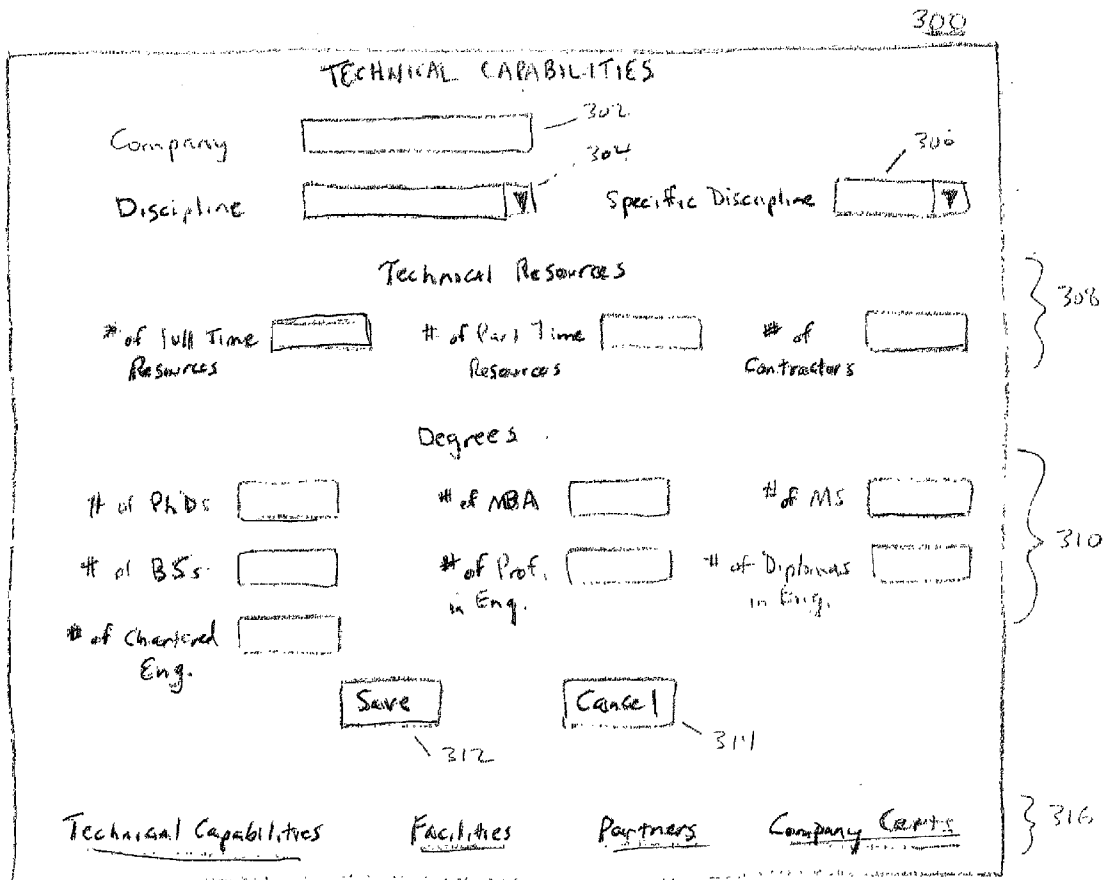 300
TECHNICAL CAPABILITIES
Company 302
304 306
Discipline Specific Discipline
Technical Resources
308
# of Full Time # of Part Time # of
Resources Resources Contractors
Degrees
# of PhDs # of MBA # of MS
310
# of BSs # of Prof. # of Diplomas
in Eng. in Eng.
# of Chartered
Eng.
Save Cancel
312 314
Technical Capabilities Facilities Partners Company Certs 316